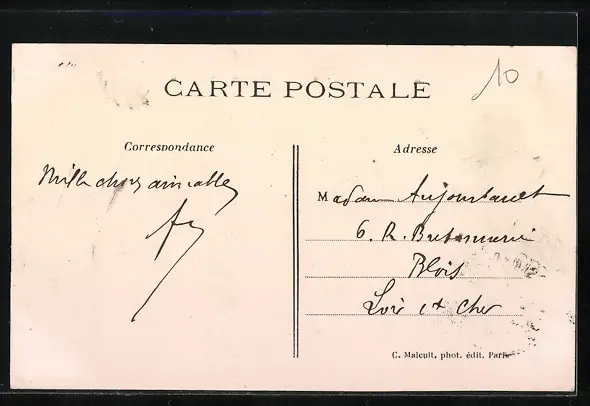 10
CARTE POSTALE
Correspondance
Mille choses aimables
Adresse
Madame
6. R. Bretonnerie
Blois
Loir et Cher
C. Malcuit, phot. édit. Paris